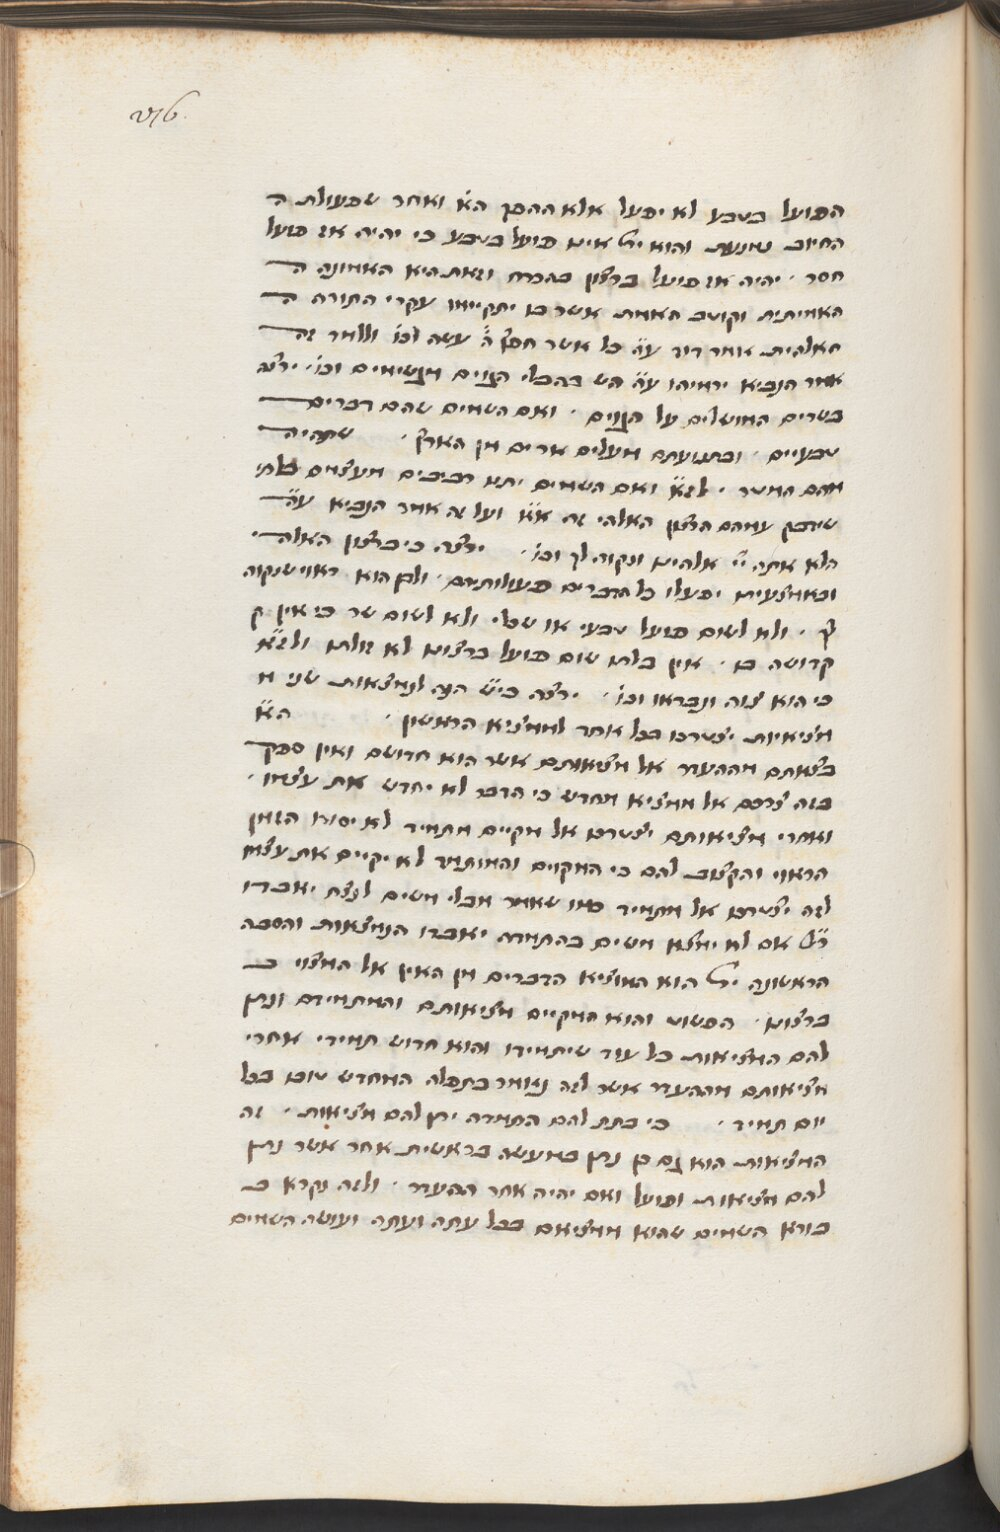 216.
הפועל בטבע לא יפעל אלא ההפך הא׳ ואחר שפעולת ה
החיוב נמנעת והוא ית׳ אינו פועל בטבע כי יהיה אז פועל
חסר · יהיה אז פועל ברצון בהכרח וזאת היא האמונה ה
האמיתית וקוטב האמת אשר בו יתקיימו עקרי התורה ה
האלהית אמר דוד ע״ה כל אשר חפץ ה׳ עשה וכו׳ ולזה
אמר הנביא ירמיהו ע״ה היש בהבלי הגוים מגשימים וכו׳ · ירצה
בשרים המושלים על הגוים · ואם השמים שהם דברים
טבעיים · ובתנועתם מעלים אדים מן הארץ · שתהיה
מהם המטר · לז״א ואם השמים יתנו רביבים מעצמם בלתי
שידבק עמהם הרצון האלהי זה א״א ועל זה אמר הנביא ע״ה
הלא אתה יי׳ אלהינו ונקוה לך וכו׳ · ירצה כי ברצון האלהי
ובאמצעיתו יפעלו כל הדברים פעולותיהם · ולכן הוא ראוי שנקוה
לך · ולא לשום פועל טבעי או שכלי ולא לשום שר כי אין ק
קדושה בו · אין בלתו שום פועל ברצונו לא זולתו ולז״א
כי הוא צוה ונבראו וכו׳ · ירצה כי יש הנה לנמצאות שני מ
מציאיות יצטרכו בכל אחד לממציא הראשון · הא׳
בצאתם מההעדר אל מציאותם אשר הוא חדושם ואין ספק
בזה צרכם אל ממציא מחדש כי הדבר לא יחדש את עצמו ·
ואחרי מציאותם יצטרכו אל מקיים מתמיד לא יסורו הזמן
הראוי והקצוב להם כי המקוים והמותמד לא יקיים את עצמו
לזה יצטרכו אל מתמיד כמו שאמר מבלי משים לנצח יאבדו
ר״ל אם לא ימצא משים בהתמדה יאבדו הנמצאות והסבה
הראשונה ית׳ הוא המוציא הדברים מן האין אל המצוי ב
ברצונו · הפשוט והוא המקיים מציאותם והמתמידם ונתן
להם המציאות כל עוד שיתמידו והוא חדוש תמידי אחרי
מציאותם מההעדר אשר לזה נאמר בתפלה המחדש טובו בכל
יום תמיד · כי בתת להם התמדה יתן להם מציאות · זה
המציאות הוא גם כן נתן במעשה בראשית אחר אשר נתן
להם מציאות ופועל ואם יהיה אחר ההעדר · ולזה נקרא ב
בורא השמים שהוא ממציאם בכל עתה ועתה ועושה השמים